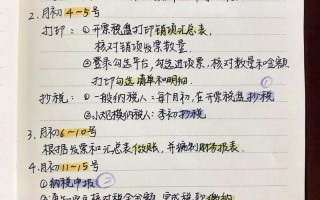 2. 月初4~5号
打印：①开票税盘打印销项汇总表，
核对销项发票数量。
②登录勾选平台，勾选进项票，核对数量和金额，
打印勾选清单和明细。
抄税：①一般纳税人：每个月初，在开票税盘抄税
②小规模纳税人：季初抄税
3. 月初6~10号
根据发票和汇总表做账，并编制财务报表。
4. 月初11~15号
①纳税申报
核对税金金额，完成税款缴纳